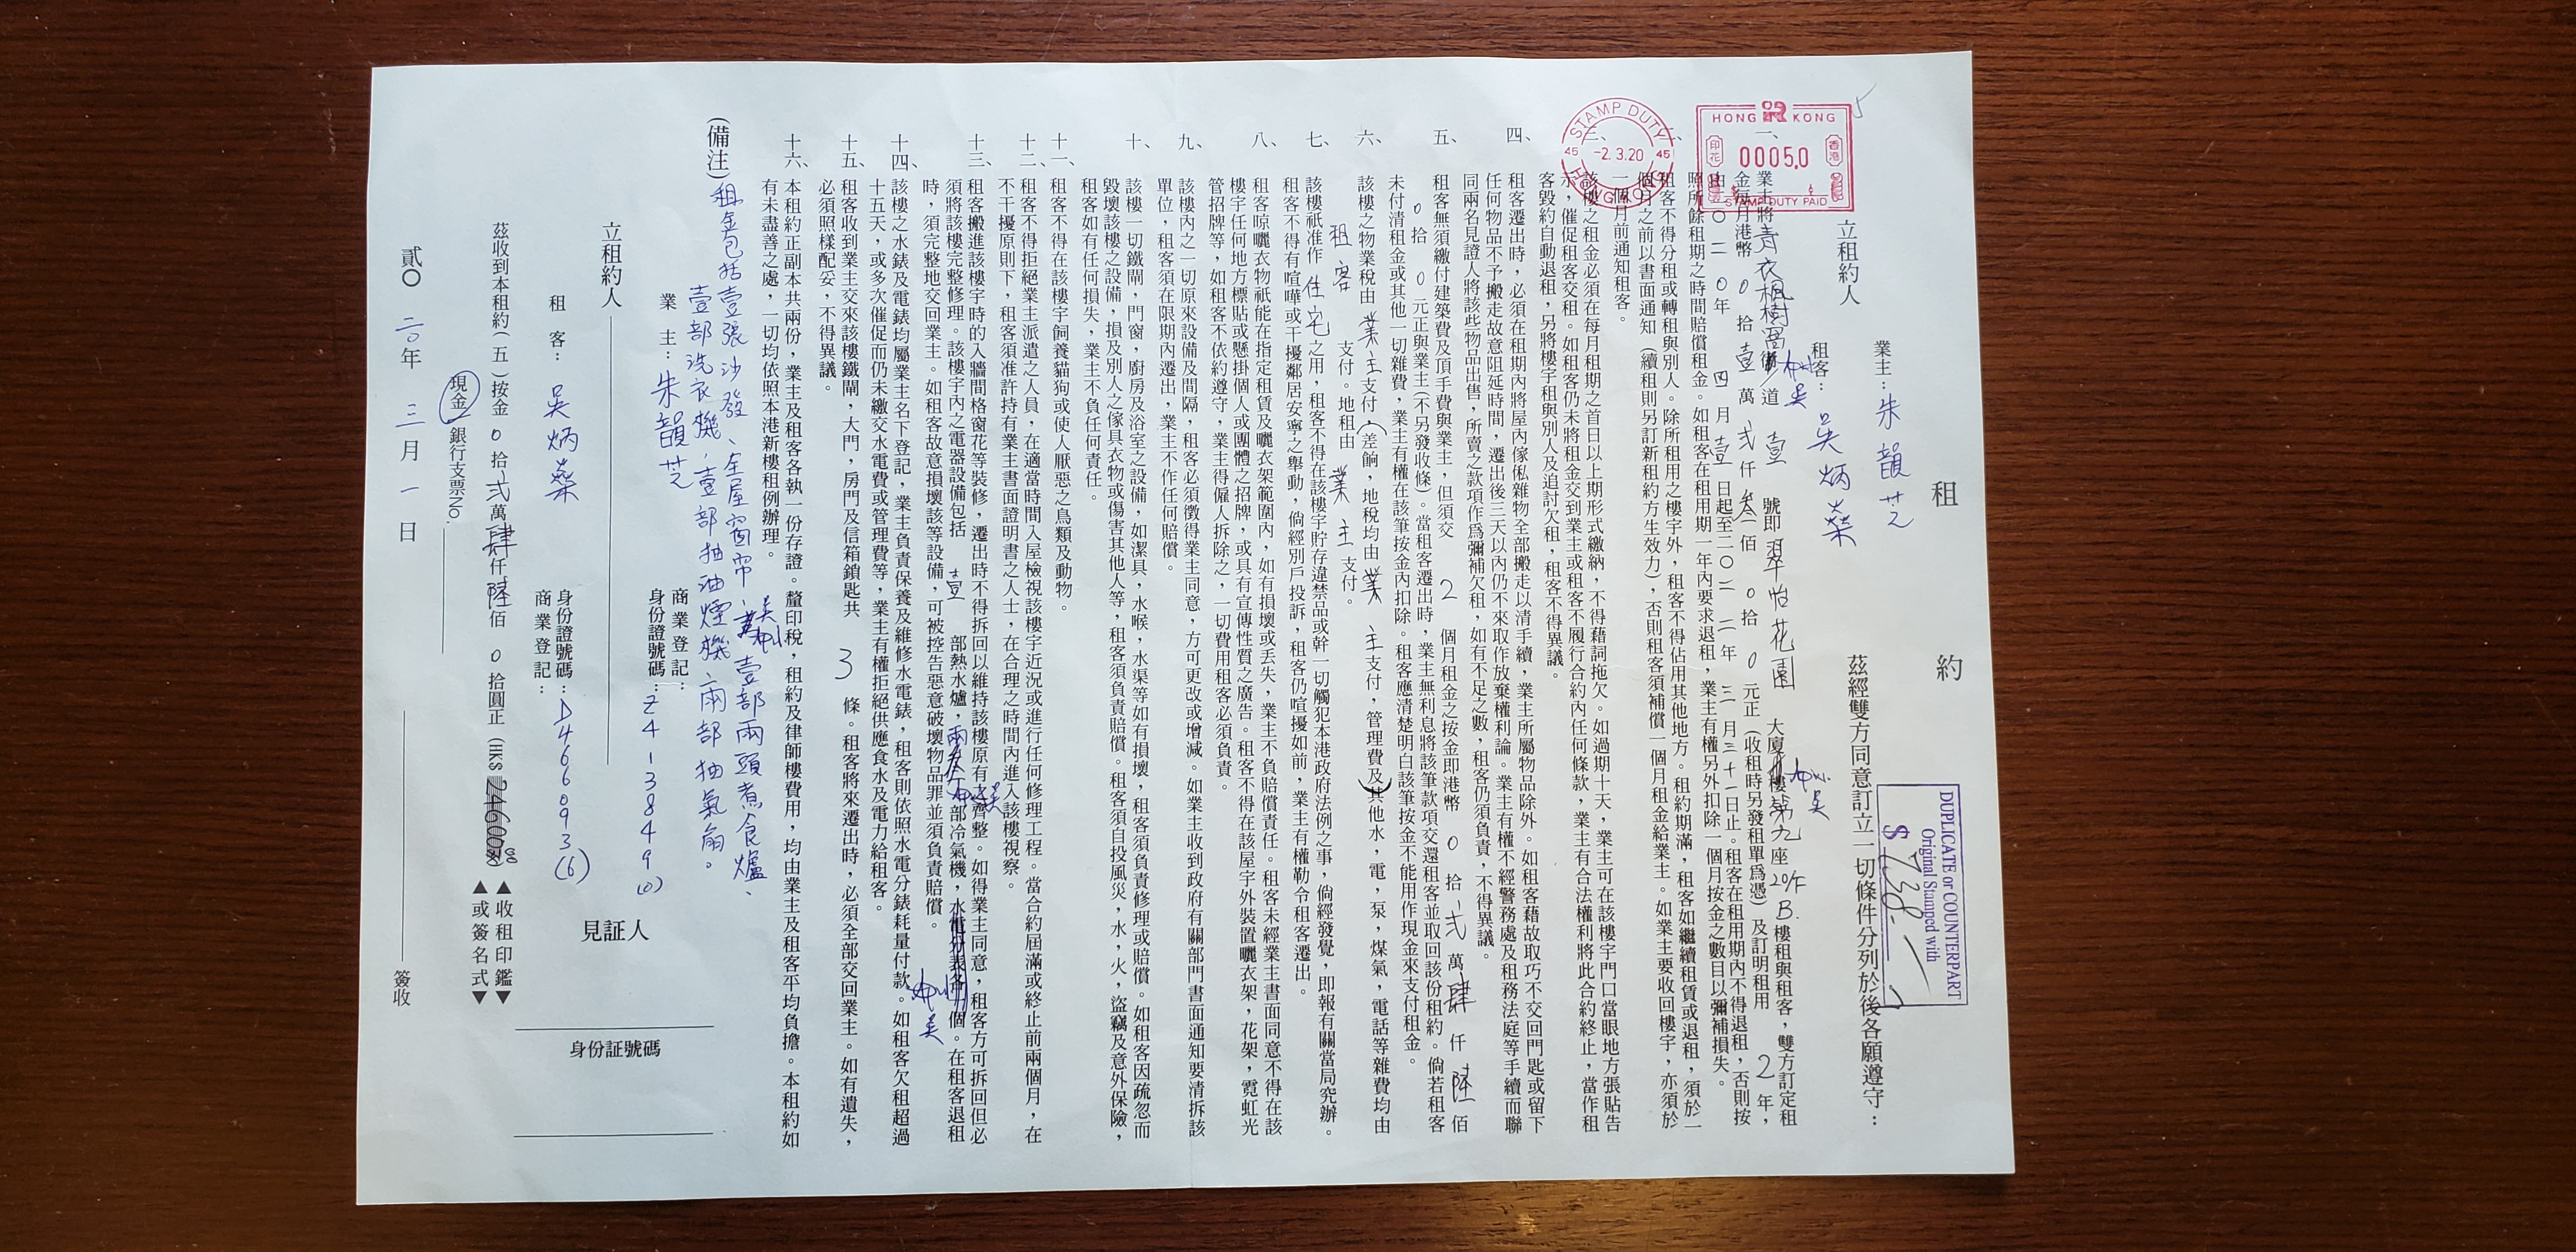 租 約
DUPLICATE or COUNTERPART
Original Stamped with
$ 738.一
業主：朱韻芝
立租約人
租客：吳炳燊
茲經雙方同意訂立一切條件分列於後各願遵守：
HONG KONG
印花
香港
0005.0
STAMP DUTY PAID
STAMP DUTY
45
-2. 3.20
45
HONG KONG
一、業主將青衣楓樹窩道 壹 號即 翠怡花園 大廈 第九座 20/F B. 樓租與租客，雙方訂定租
金每月港幣 0 拾 壹 萬 弍 仟 叁 佰 0 拾 0 元正（收租時另發租單爲憑）及訂明租用 2 年，
由二〇二〇年 四 月 壹 日起至二〇二二年 三 月三十一日止。租客在租用期內不得退租，否則按
照所餘租期之時間賠償租金。如租客在租用期一年內要求退租，業主有權另外扣除一個月按金之數目以彌補損失。
租客不得分租或轉租與別人。除所租用之樓宇外，租客不得佔用其他地方。租約期滿，租客如繼續租賃或退租，須於一
個月之前以書面通知（續租則另訂新租約方生效力），否則租客須補償一個月租金給業主。如業主要收回樓宇，亦須於
一個月前通知租客。
三、該樓之租金必須在每月租期之首日以上期形式繳納，不得藉詞拖欠。如過期十天，業主可在該樓宇門口當眼地方張貼告
示，催促租客交租。如租客仍未將租金交到業主或租客不履行合約內任何條款，業主有合法權利將此合約終止，當作租
客毀約自動退租，另將樓宇租與別人及追討欠租，租客不得異議。
四、租客遷出時，必須在租期內將屋內傢俬雜物全部搬走以清手續，業主所屬物品除外。如租客藉故取巧不交回門匙或留下
任何物品不予搬走故意阻延時間，遷出後三天以內仍不來取作放棄權利論。業主有權不經警務處及租務法庭等手續而聯
同兩名見證人將該些物品出售，所賣之款項作爲彌補欠租，如有不足之數，租客仍須負責，不得異議。
五、租客無須繳付建築費及頂手費與業主，但須交 2 個月租金之按金即港幣 0 拾 弍 萬 肆 仟 陸 佰
0 拾 0 元正與業主（不另發收條）。當租客遷出時，業主無利息將該筆款項交還租客並取回該份租約。倘若租客
未付清租金或其他一切雜費，業主有權在該筆按金內扣除。租客應清楚明白該筆按金不能用作現金來支付租金。
六、該樓之物業稅由 業主 支付，差餉，地稅均由 業主 支付，管理費及其他水，電，泵，煤氣，電話等雜費均由
租客 支付。地租由 業主 支付。
七、該樓祇准作 住宅 之用，租客不得在該樓宇貯存違禁品或幹一切觸犯本港政府法例之事，倘經發覺，即報有關當局究辦。
租客不得有喧嘩或干擾鄰居安寧之舉動，倘經別戶投訴，租客仍喧擾如前，業主有權勒令租客遷出。
八、租客晾曬衣物祇能在指定租賃及曬衣架範圍內，如有損壞或丟失，業主不負賠償責任。租客未經業主書面同意不得在該
樓宇任何地方標貼或懸掛個人或團體之招牌，或具有宣傳性質之廣告。租客不得在該屋宇外裝置曬衣架，花架，霓虹光
管招牌等，如租客不依約遵守，業主得僱人拆除之，一切費用租客必須負責。
九、該樓內之一切原來設備及間隔，租客必須徵得業主同意，方可更改或增減。如業主收到政府有關部門書面通知要清拆該
單位，租客須在限期內遷出，業主不作任何賠償。
十、該樓一切鐵閘，門窗，廚房及浴室之設備，如潔具，水喉，水渠等如有損壞，租客須負責修理或賠償。如租客因疏忽而
毀壞該樓之設備，損及別人之傢具衣物或傷害其他人等，租客須負責賠償。租客須自投風災，水，火，盜竊及意外保險，
租客如有任何損失，業主不負任何責任。
十一、租客不得在該樓宇飼養貓狗或使人厭惡之鳥類及動物。
十二、租客不得拒絕業主派遣之人員，在適當時間入屋檢視該樓宇近況或進行任何修理工程。當合約屆滿或終止前兩個月，在
不干擾原則下，租客須准許持有業主書面證明書之人士，在合理之時間內進入該樓視察。
十三、租客搬進該樓宇時的入牆間格窗花等裝修，遷出時不得拆回以維持該樓原有之齊整。如得業主同意，租客方可拆回但必
須將該樓完整修理。該樓宇內之電器設備包括 壹 部熱水爐，兩 部冷氣機，水電分表各 個。在租客退租
時，須完整地交回業主。如租客故意損壞該等設備，可被控告惡意破壞物品罪並須負責賠償。
十四、該樓之水錶及電錶均屬業主名下登記，業主負責保養及維修水電錶，租客則依照水電分錶耗量付款。如租客欠租超過
十五天，或多次催促而仍未繳交水電費或管理費等，業主有權拒絕供應食水及電力給租客。
十五、租客收到業主交來該樓鐵閘，大門，房門及信箱鎖匙共 3 條。租客將來遷出時，必須全部交回業主。如有遺失，
必須照樣配妥，不得異議。
十六、本租約正副本共兩份，業主及租客各執一份存證。釐印稅，租約及律師樓費用，均由業主及租客平均負擔。本租約如
有未盡善之處，一切均依照本港新樓租例辦理。
（備注）租金包括壹張沙發、全屋窗帘、壹部兩頭煮食爐、
壹部洗衣機、壹部抽油煙機、兩部抽氣扇。
業 主：朱韻芝
商業登記：
身份證號碼：Z413849(0)
立租約人
見証人
身份証號碼
租 客：吳炳燊
身份證號碼：D466093(6)
商業登記：
茲收到本租約（五）按金 0 拾 弍 萬 肆 仟 陸 佰 0 拾圓正（HK$ 24600.00）
▲收租印鑑▼
▲或簽名式▼
現金/銀行支票No.
貳〇 二〇 年 三 月 一 日
簽收